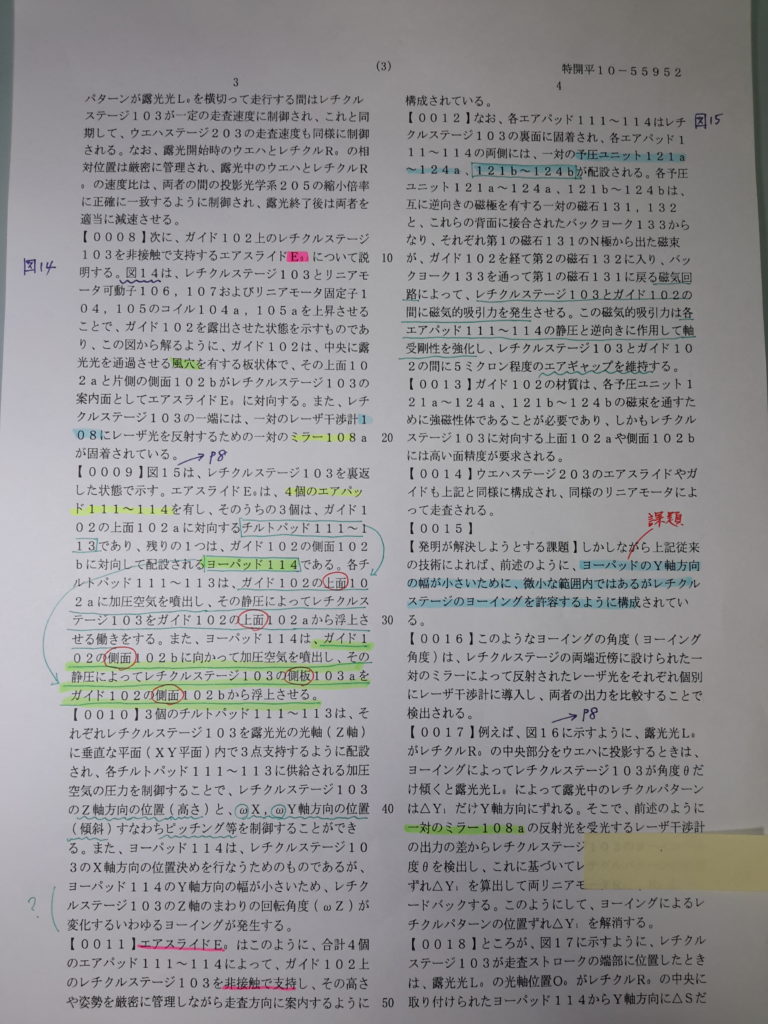 (3)
特開平10-55952
3
パターンが露光光L₀を横切って走行する間はレチクル
ステージ103が一定の走査速度に制御され、これと同
期して、ウエハステージ203の走査速度も同様に制御
される。なお、露光開始時のウエハとレチクルR₀の相
対位置は厳密に管理され、露光中のウエハとレチクルR
₀の速度比は、両者の間の投影光学系205の縮小倍率
に正確に一致するように制御され、露光終了後は両者を
適当に減速させる。
【0008】次に、ガイド102上のレチクルステージ
103を非接触で支持するエアスライドE₀について説
10
明する。図14は、レチクルステージ103とリニアモ
図14
ータ可動子106,107およびリニアモータ固定子1
04,105のコイル104a,105aを上昇させる
ことで、ガイド102を露出させた状態を示すものであ
り、この図から解るように、ガイド102は、中央に露
光光を通過させる風穴を有する板状体で、その上面10
2aと片側の側面102bがレチクルステージ103の
案内面としてエアスライドE₀に対向する。また、レチ
クルステージ103の一端には、一対のレーザ干渉計1
08にレーザ光を反射するための一対のミラー108a
20
が固着されている。
P8
【0009】図15は、レチクルステージ103を裏返
した状態で示す。エアスライドE₀は、4個のエアパッ
ド111〜114を有し、そのうちの3個は、ガイド1
02の上面102aに対向するチルトパッド111〜1
13であり、残りの1つは、ガイド102の側面102
bに対向して配設されるヨーパッド114である。各チ
ルトパッド111〜113は、ガイド102の上面10
2aに加圧空気を噴出し、その静圧によってレチクルス
テージ103をガイド102の上面102aから浮上さ
30
せる働きをする。また、ヨーパッド114は、ガイド1
02の側面102bに向かって加圧空気を噴出し、その
静圧によってレチクルステージ103の側板103aを
ガイド102の側面102bから浮上させる。
【0010】3個のチルトパッド111〜113は、そ
れぞれレチクルステージ103を露光光の光軸(Z軸)
に垂直な平面(XY平面)内で3点支持するように配設
され、各チルトパッド111〜113に供給される加圧
空気の圧力を制御することで、レチクルステージ103
のZ軸方向の位置(高さ)と、ωX,ωY軸方向の位置
40
(傾斜)すなわちピッチング等を制御することができ
る。また、ヨーパッド114は、レチクルステージ10
3のX軸方向の位置決めを行なうためのものであるが、
ヨーパッド114のY軸方向の幅が小さいため、レチク
ルステージ103のZ軸のまわりの回転角度(ωZ)が
?
変化するいわゆるヨーイングが発生する。
【0011】エアスライドE₀はこのように、合計4個
のエアパッド111〜114によって、ガイド102上
のレチクルステージ103を非接触で支持し、その高さ
や姿勢を厳密に管理しながら走査方向に案内するように
50
4
構成されている。
【0012】なお、各エアパッド111〜114はレチ
図15
クルステージ103の裏面に固着され、各エアパッド1
11〜114の両側には、一対の予圧ユニット121a
〜124a、121b〜124bが配設される。各予圧
ユニット121a〜124a、121b〜124bは、
互に逆向きの磁極を有する一対の磁石131,132
と、これらの背面に接合されたバックヨーク133から
なり、それぞれ第1の磁石131のN極から出た磁束
が、ガイド102を経て第2の磁石132に入り、バッ
クヨーク133を通って第1の磁石131に戻る磁気回
路によって、レチクルステージ103とガイド102の
間に磁気的吸引力を発生させる。この磁気的吸引力は各
エアパッド111〜114の静圧と逆向きに作用して軸
受剛性を強化し、レチクルステージ103とガイド10
2の間に5ミクロン程度のエアギャップを維持する。
【0013】ガイド102の材質は、各予圧ユニット1
21a〜124a、121b〜124bの磁束を通すた
めに強磁性体であることが必要であり、しかもレチクル
ステージ103に対向する上面102aや側面102b
には高い面精度が要求される。
【0014】ウエハステージ203のエアスライドやガ
イドも上記と同様に構成され、同様のリニアモータによ
って走査される。
【0015】
課題
【発明が解決しようとする課題】しかしながら上記従来
の技術によれば、前述のように、ヨーパッドのY軸方向
の幅が小さいために、微小な範囲内ではあるがレチクル
ステージのヨーイングを許容するように構成されてい
る。
【0016】このようなヨーイングの角度(ヨーイング
角度)は、レチクルステージの両端近傍に設けられた一
対のミラーによって反射されたレーザ光をそれぞれ個別
にレーザ干渉計に導入し、両者の出力を比較することで
検出される。
P8
【0017】例えば、図16に示すように、露光光L₀
がレチクルR₀の中央部分をウエハに投影するときは、
ヨーイングによってレチクルステージ103が角度θだ
け傾くと露光光L₀によって露光中のレチクルパターン
は△Y₁だけY軸方向にずれる。そこで、前述のように
一対のミラー108aの反射光を受光するレーザ干渉計
の出力の差からレチクルステージ103の
度θを検出し、これに基づいてレ
ずれ△Y₁を算出して両リニアモー
ードバックする。このようにして、ヨーイングによるレ
チクルパターンの位置ずれ△Y₁を解消する。
【0018】ところが、図17に示すように、レチクル
ステージ103が走査ストロークの端部に位置したとき
は、露光光L₀の光軸位置O₀がレチクルR₀の中央に
取り付けられたヨーパッド114からY軸方向に△Sだ